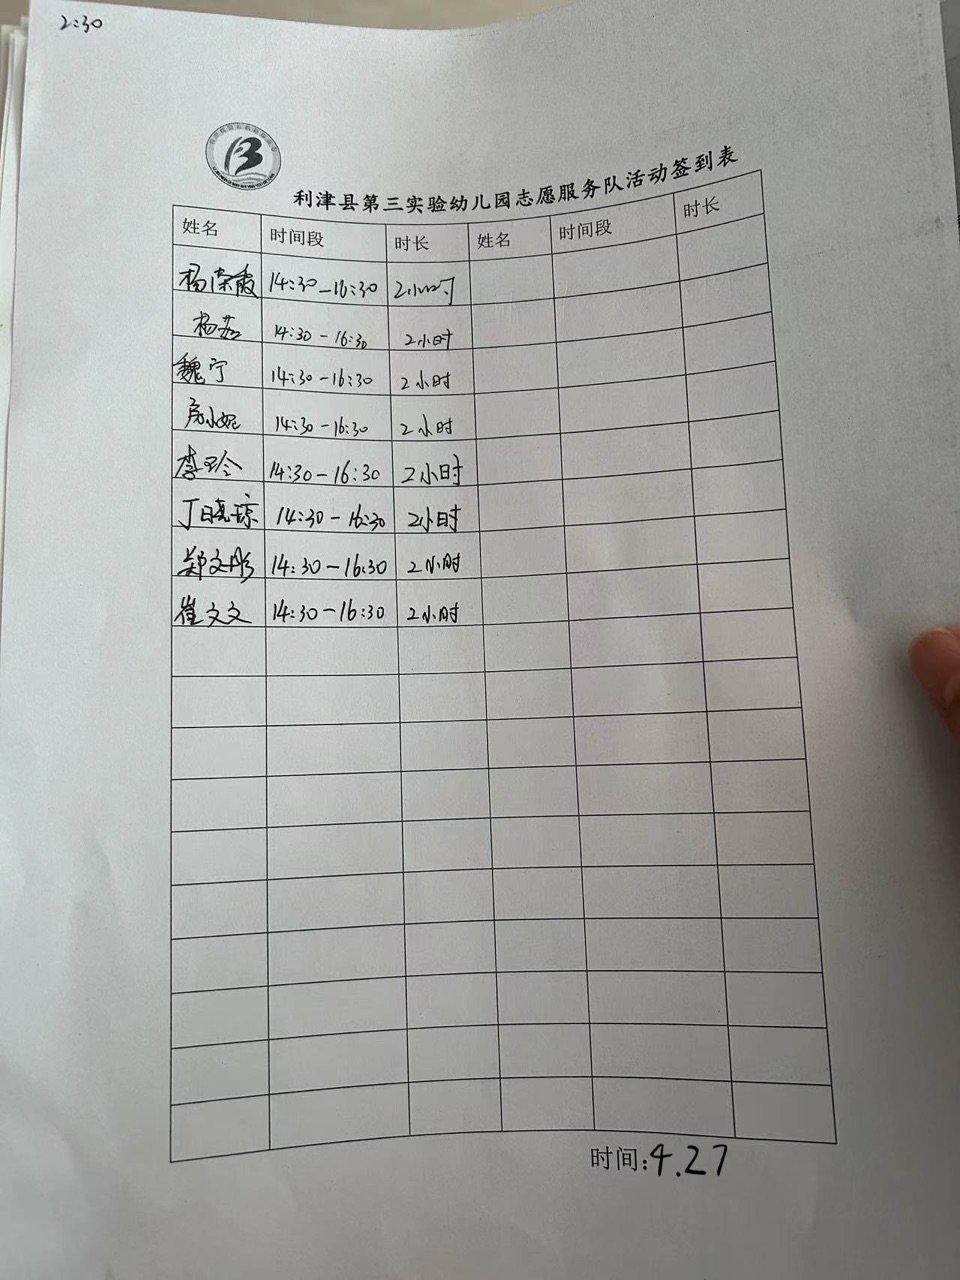 2:30
利津县第三实验幼儿园志愿服务队活动签到表
姓名 时间段 时长 姓名 时间段 时长
杨荣霞 14:30-16:30 2小时
杨茹 14:30-16:30 2小时
魏宁 14:30-16:30 2小时
房小妮 14:30-16:30 2小时
李玲 14:30-16:30 2小时
丁晓琼 14:30-16:30 2小时
郑文彤 14:30-16:30 2小时
崔文文 14:30-16:30 2小时
时间:4.27